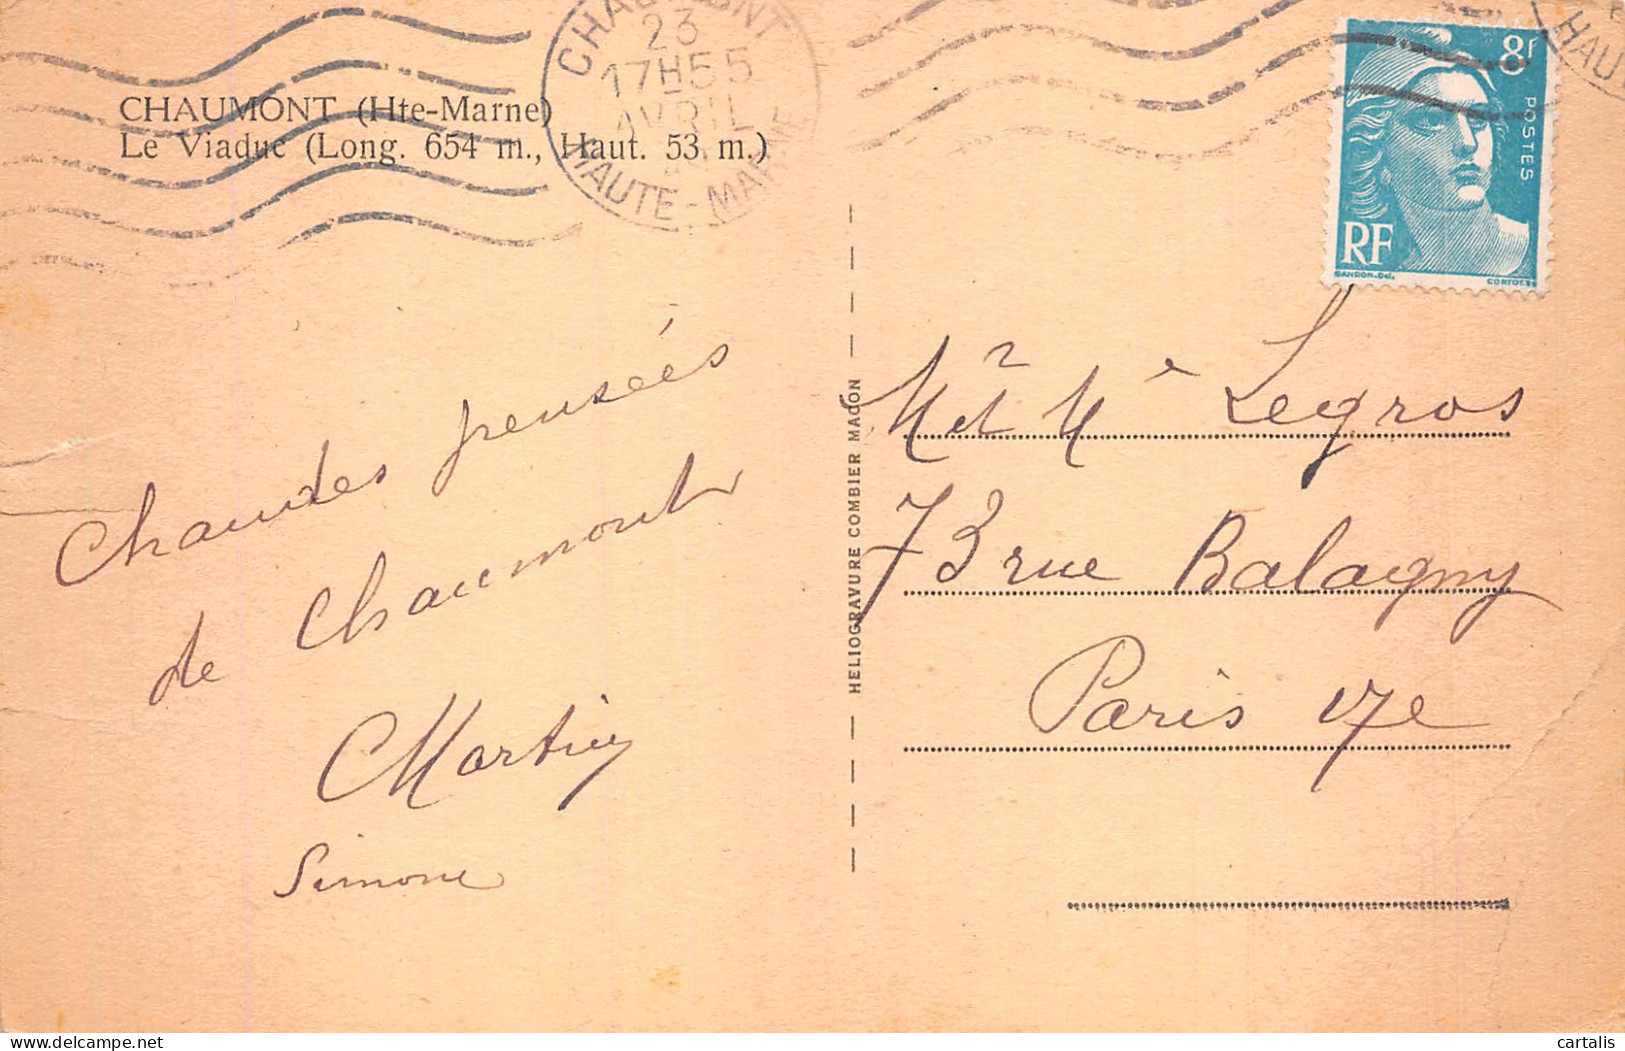 CHAUMONT (Hte-Marne)
Le Viaduc (Long. 654 m., Haut. 53 m.)
CHAUMONT
23
17H55
AVRIL
HAUTE-MARNE
HAU
8F
POSTES
RF
GANDON-Del.
CORTOT-Sc
Chaudes pensées
de Chaumont
Martiny
Simone
HELIOGRAVURE COMBIER MACON
Mr et Me Legros
73 rue Balagny
Paris 17e
cartalis
delcampe.net